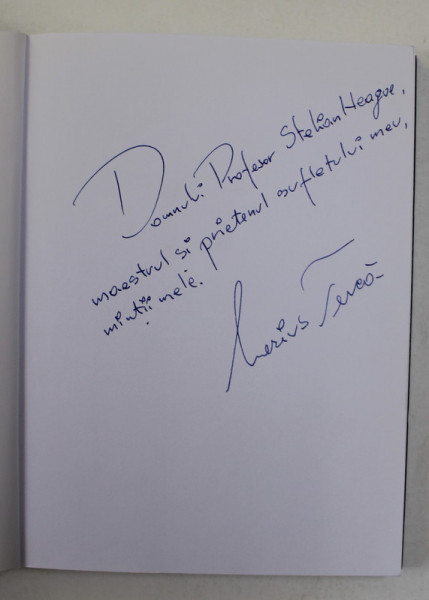 Domnului Profesor Stelian Neagoe,
maestrul si prietenul sufletului meu,
minții mele.
Marius Tucă